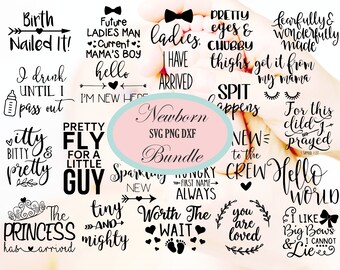 Birth
Nailed It!
Future
Ladies Man
Current
Mama's Boy
ladies,
I HAVE
ARRIVED
PRETTY
eyes &
CHUBBY
thighs got it from
my mama
fearfully &
wonderfully
made
I drink
UNTIL I
pass out
hello
I'M NEW HERE
SPIT
happens
For this
child I
prayed
itty
BITTY &
pretty
PRETTY
FLY
FOR A
LITTLE
GUY
Newborn
SVG PNG DXF
Bundle
Sparkling
NEW
HUNGRY
FIRST NAME
ALWAYS
NEW
to the
CREW
Hello
world
The
PRINCESS
has arrived
tiny
and
mighty
Worth The
Wait
you are
loved
I LIKE
Big Bows
& I CANNOT
Lie